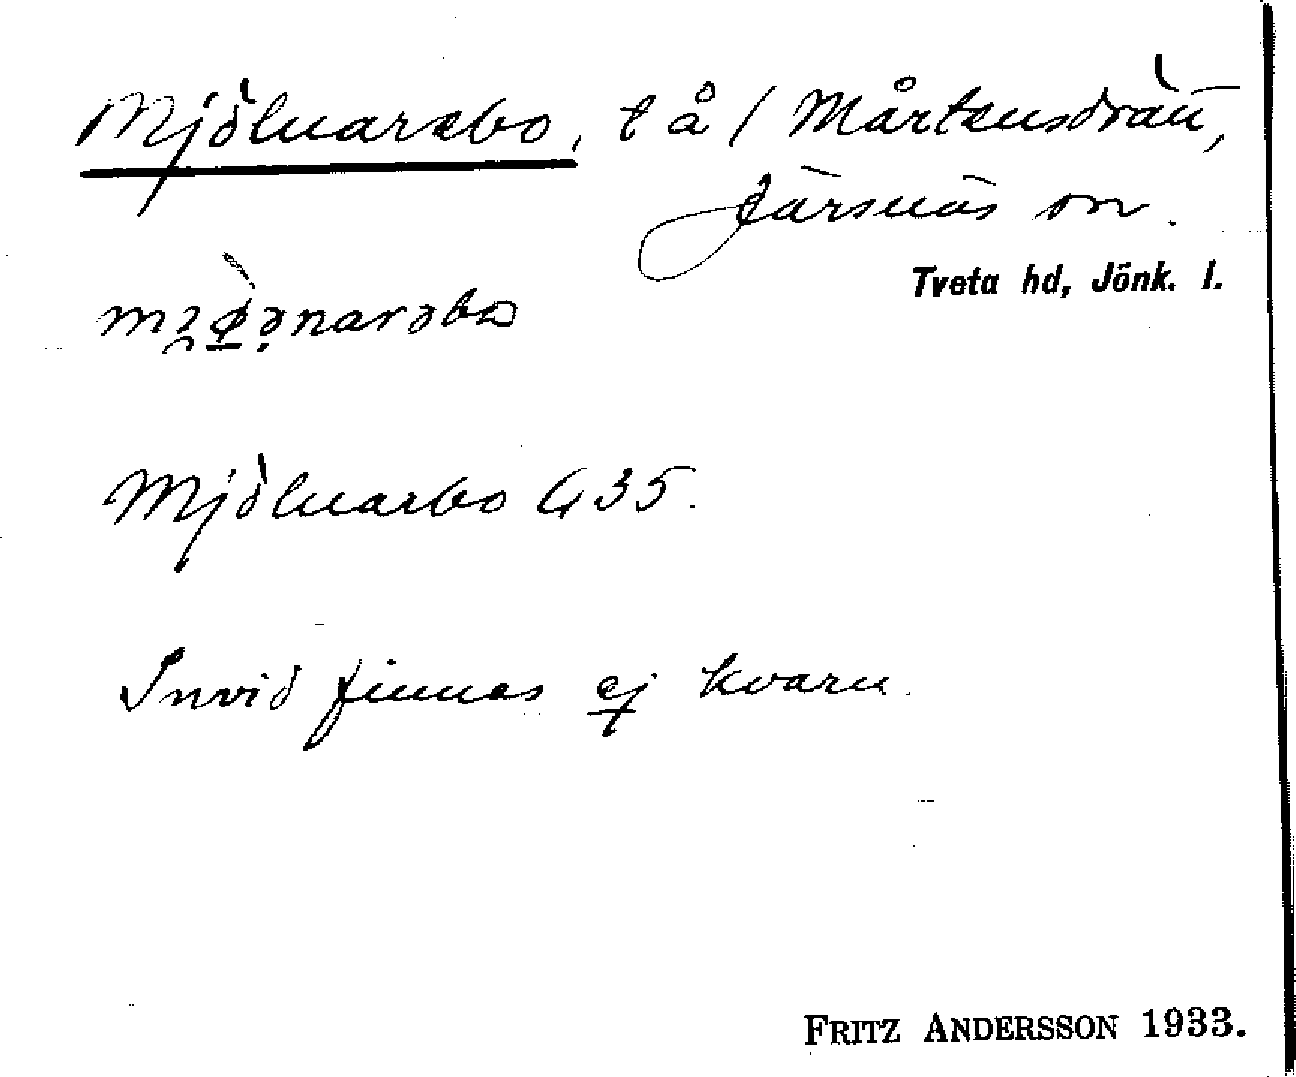 Mjölnarebo, t å / Mårtensdrätt,
Järsnäs sn.
Tveta hd, Jönk. l.
Mjölnarbo G 35.
Invid finnes ej kvarn.
FRITZ ANDERSSON 1933.